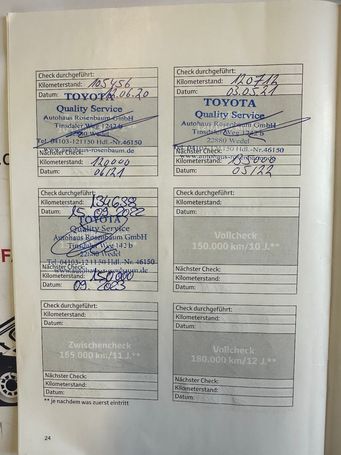 Check durchgeführt:
Kilometerstand: 105456
Datum: 06.20
TOYOTA
Quality Service
Autohaus Rosenbaum GmbH
Tinsdaler Weg 1242 b
22880 Wedel
Tel. 04103-121150 Hdl.-Nr.46150
www.autohaus-rosenbaum.de
Nächster Check:
Kilometerstand: 120000
Datum: 06/21
Check durchgeführt:
Kilometerstand: 120712
Datum: 03.05.21
TOYOTA
Quality Service
Autohaus Rosenbaum GmbH
Tinsdaler Weg
22880 Wedel
Hdl.-Nr.46150
Nächster Check:
Kilometerstand: 135000
Datum: 05/22
Check durchgeführt:
Kilometerstand: 134638
Datum: 15.09.2022
TOYOTA
Quality Service
Autohaus Rosenbaum GmbH
Tinsdaler Weg 142 b
22880 Wedel
Tel. 04103-121150 Hdl.-Nr. 46150
Nächster Check:
Kilometerstand: 150000
Datum: 09.2023
Check durchgeführt:
Kilometerstand:
Datum:
Vollcheck
150.000 km/10 J.**
Nächster Check:
Kilometerstand:
Datum:
Check durchgeführt:
Kilometerstand:
Datum:
Zwischencheck
165.000 km/11 J.**
Nächster Check:
Kilometerstand:
Datum:
Check durchgeführt:
Kilometerstand:
Datum:
Vollcheck
180.000 km/12 J.**
Nächster Check:
Kilometerstand:
Datum:
** je nachdem was zuerst eintritt
24